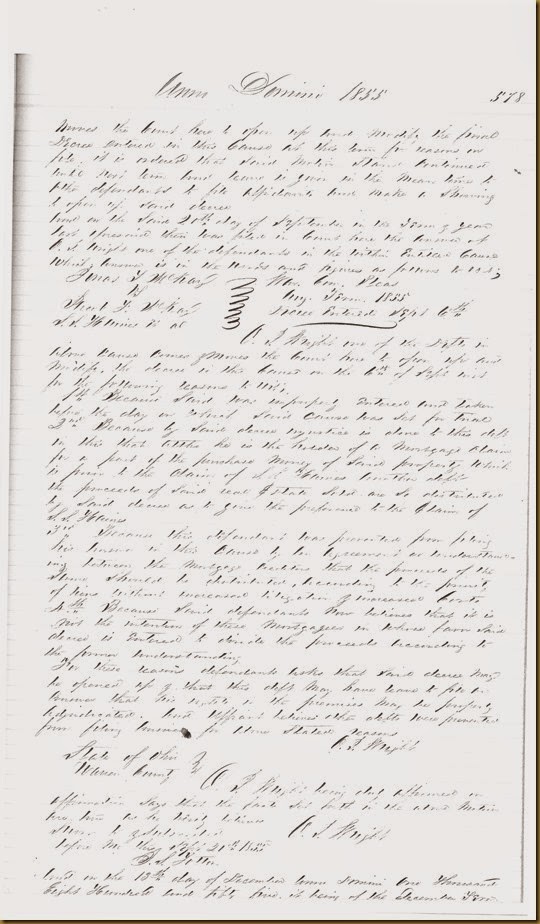 Anno Domini 1855 578
moves the Court here to open up and modify the final
decree entered in this Cause at this term for reasons on
file, it is ordered that said Motion Stand continued
until next term and leave is given in the mean time to
the defendants to file affidavits and make a Showing
to open up said decree
And on the said 20th day of September in the Term & year
last aforesaid there was filed in Court here the answer of
A. L. Wright one of the defendants in the within Entitled Cause
Which answer is in the words and figures as follows to wit;
Jonas T. McKay War. Com. Pleas
vs Aug. Term. 1855
McKay Decree Entered Sept 6th
S. S. Haines et al
A. L. Wright one of the Defts in
above cause comes & moves the Court here to open up and
Modify the decree in this Cause on the 6th of Sept inst
for the following reasons to wit;
1st Because Said was improperly Entered and taken
before the day on which Said Cause was Set for trial
2nd Because by Said decree injustice is done to this deft
in this that he is the holder of a Mortgage Claim
for a part of the purchase Money of Said property Which
is prior to the Claim of S. S. Haines another deft
the proceeds of Said real Estate Sold are so distributed
by Said decree as to give the preference to the Claim of
S. S. Haines
3rd Because this defendant was prevented from filing
his answer in this Cause by an Agreement or understand
ing between the Mortgage Creditors that the proceeds of the
Same Should be distributed according to the priority
of liens without increased litigation & increased Costs
4th Because Said defendants Now believes that it is
not the intention of these Mortgagees in whose favor Said
decree is Entered to divide the proceeds according to
the former understanding
For these reasons defendants asks that Said decree may
be opened up & that this deft May have leave to file an
answer that his rights in the premises may be properly
Adjudicated. And Affiant believes other defts were prevented
from filing answers for above Stated reasons
A. L. Wright
State of Ohio
Warren County
A. L. Wright being duly affirmed on
affirmation Says that the facts Set forth in the above Motion
are true as he verily believes
Sworn to & Subscribed A. L. Wright
before Me this Sept 20th 1855
And on the 13th day of December Anno Domini One Thousand
Eight Hundred and fifty five, it being of the December Term